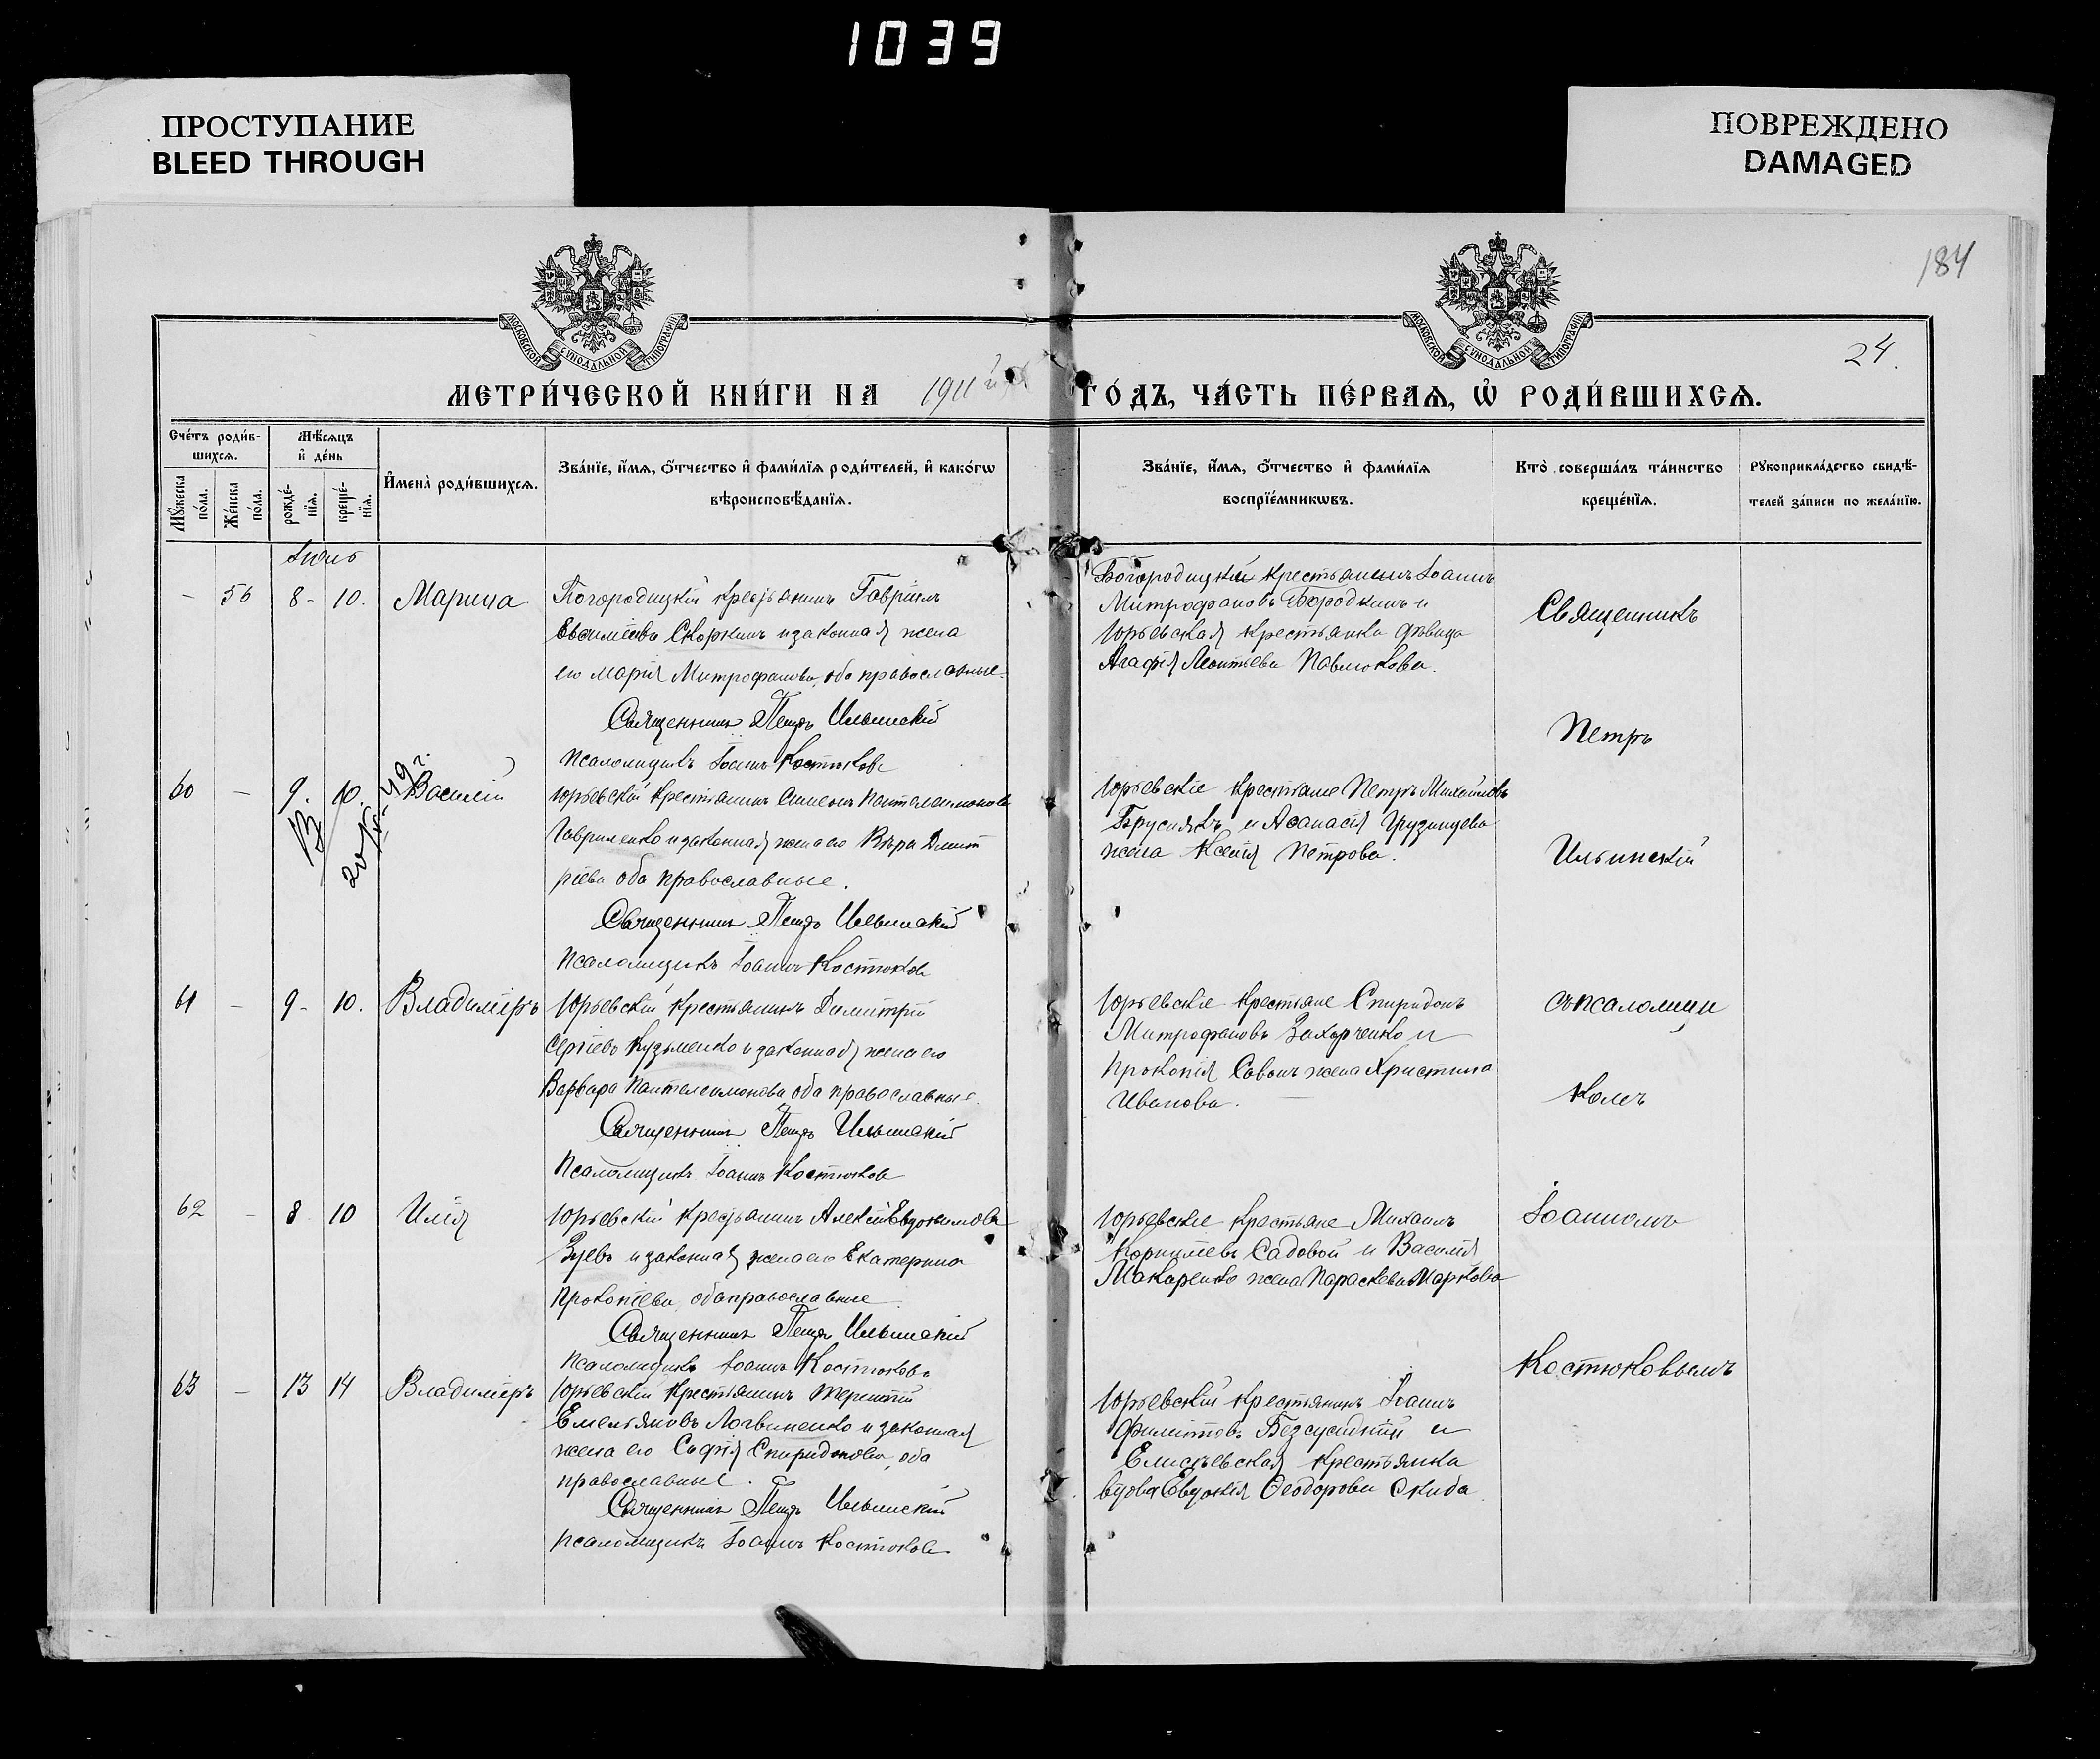 1039
ПРОСТУПАНИЕ
BLEED THROUGH
ПОВРЕЖДЕНО
DAMAGED
184
24.
МОСКОВСКОЙ СѴНОДАЛЬНОЙ ТИПОГРАФІИ
МОСКОВСКОЙ СѴНОДАЛЬНОЙ ТИПОГРАФІИ
МЕТРИ́ЧЕСКОЙ КНИ́ГИ НА 1911й ГО́ДЪ, ЧА́СТЬ ПЕ́РВАѦ, Ѡ҆ РОДИ́ВШИХСѦ.
Сче́тъ роди́в-
шихсѧ.
Мꙋ́жеска по́ла.
Же́нска по́ла.
Мѣ́сѧцъ
и҆ де́нь
рожде́-
нїѧ.
креще́-
нїѧ.
И҆мена̀ роди́вшихсѧ.
Зва́нїе, и҆́мѧ, ѻ҆́тчество и҆ фами́лїѧ роди́телей, и҆ како́гѡ
вѣроисповѣ́данїѧ.
Зва́нїе, и҆́мѧ, ѻ҆́тчество и҆ фами́лїѧ
воспрїе́мникѡвъ.
Кто̀ соверша́лъ та́инство
креще́нїѧ.
Рꙋкоприкла́дство свидѣ́-
телей за́писи по жела́нїю.
Іюль
- 56 8- 10. Марина
Богородицкій крестьянинъ Гавріилъ
Евфиміевъ Скоркинъ и законная жена
его Марія Митрофанова, оба православные.
Священникъ Петръ Ильинскій
Псаломщикъ Іоаннъ Костюковъ
Богородицкій крестьянинъ Іоаннъ
Митрофановъ Бородкинъ и
Юрьевская крестьянка дѣвица
Агафія Леонтьева Павлюкова.
60 - 9. 10. Василій
Юрьевскій крестьянинъ Симеонъ Пантелеимоновъ
Гавриленко и законная жена его Вѣра Димит
ріева оба православные.
Священникъ Петръ Ильинскій
Псаломщикъ Іоаннъ Костюковъ
Юрьевскіе крестьяне Петръ Михайловъ
Брусиякъ и Аѳанасія Грузинцева
жена Ксенія Петрова.
61 - 9- 10. Владиміръ
Юрьевскій крестьянинъ Димитрій
Сергіевъ Кузьменко и законная жена его
Варвара Пантелеимонова оба православные.
Священникъ Петръ Ильинскій
Псаломщикъ Іоаннъ Костюковъ
Юрьевскіе крестьяне Спиридонъ
Митрофановъ Захарченко и
Прокопія Савонъ жена Христина
Иванова.
62 - 8 10 Илія
Юрьевскій крестьянинъ Алексій Евдокимовъ
Зуевъ и законная жена его Екатерина
Прокопіева, оба православные
Священникъ Петръ Ильинскій
Псаломщикъ Іоаннъ Костюковъ
Юрьевскіе крестьяне Михаилъ
Корниліевъ Садовой и Василія
Макаренко жена Параскева Маркова
63 - 13 14 Владиміръ
Юрьевскій крестьянинъ Терентій
Емельяновъ Логвиненко и законная
жена его Софія Спиридонова, оба
православные.
Священникъ Петръ Ильинскій
псаломщикъ Іоаннъ Костюковъ
Юрьевскій крестьянинъ Іоаннъ
Безсусидній и
Елисѣевская крестьянка
вдова Евдокія Ѳеодорова Скиба
Священникъ
Петръ
Ильинскій
съ псаломщи
комъ
Іоанномъ
Костюковымъ